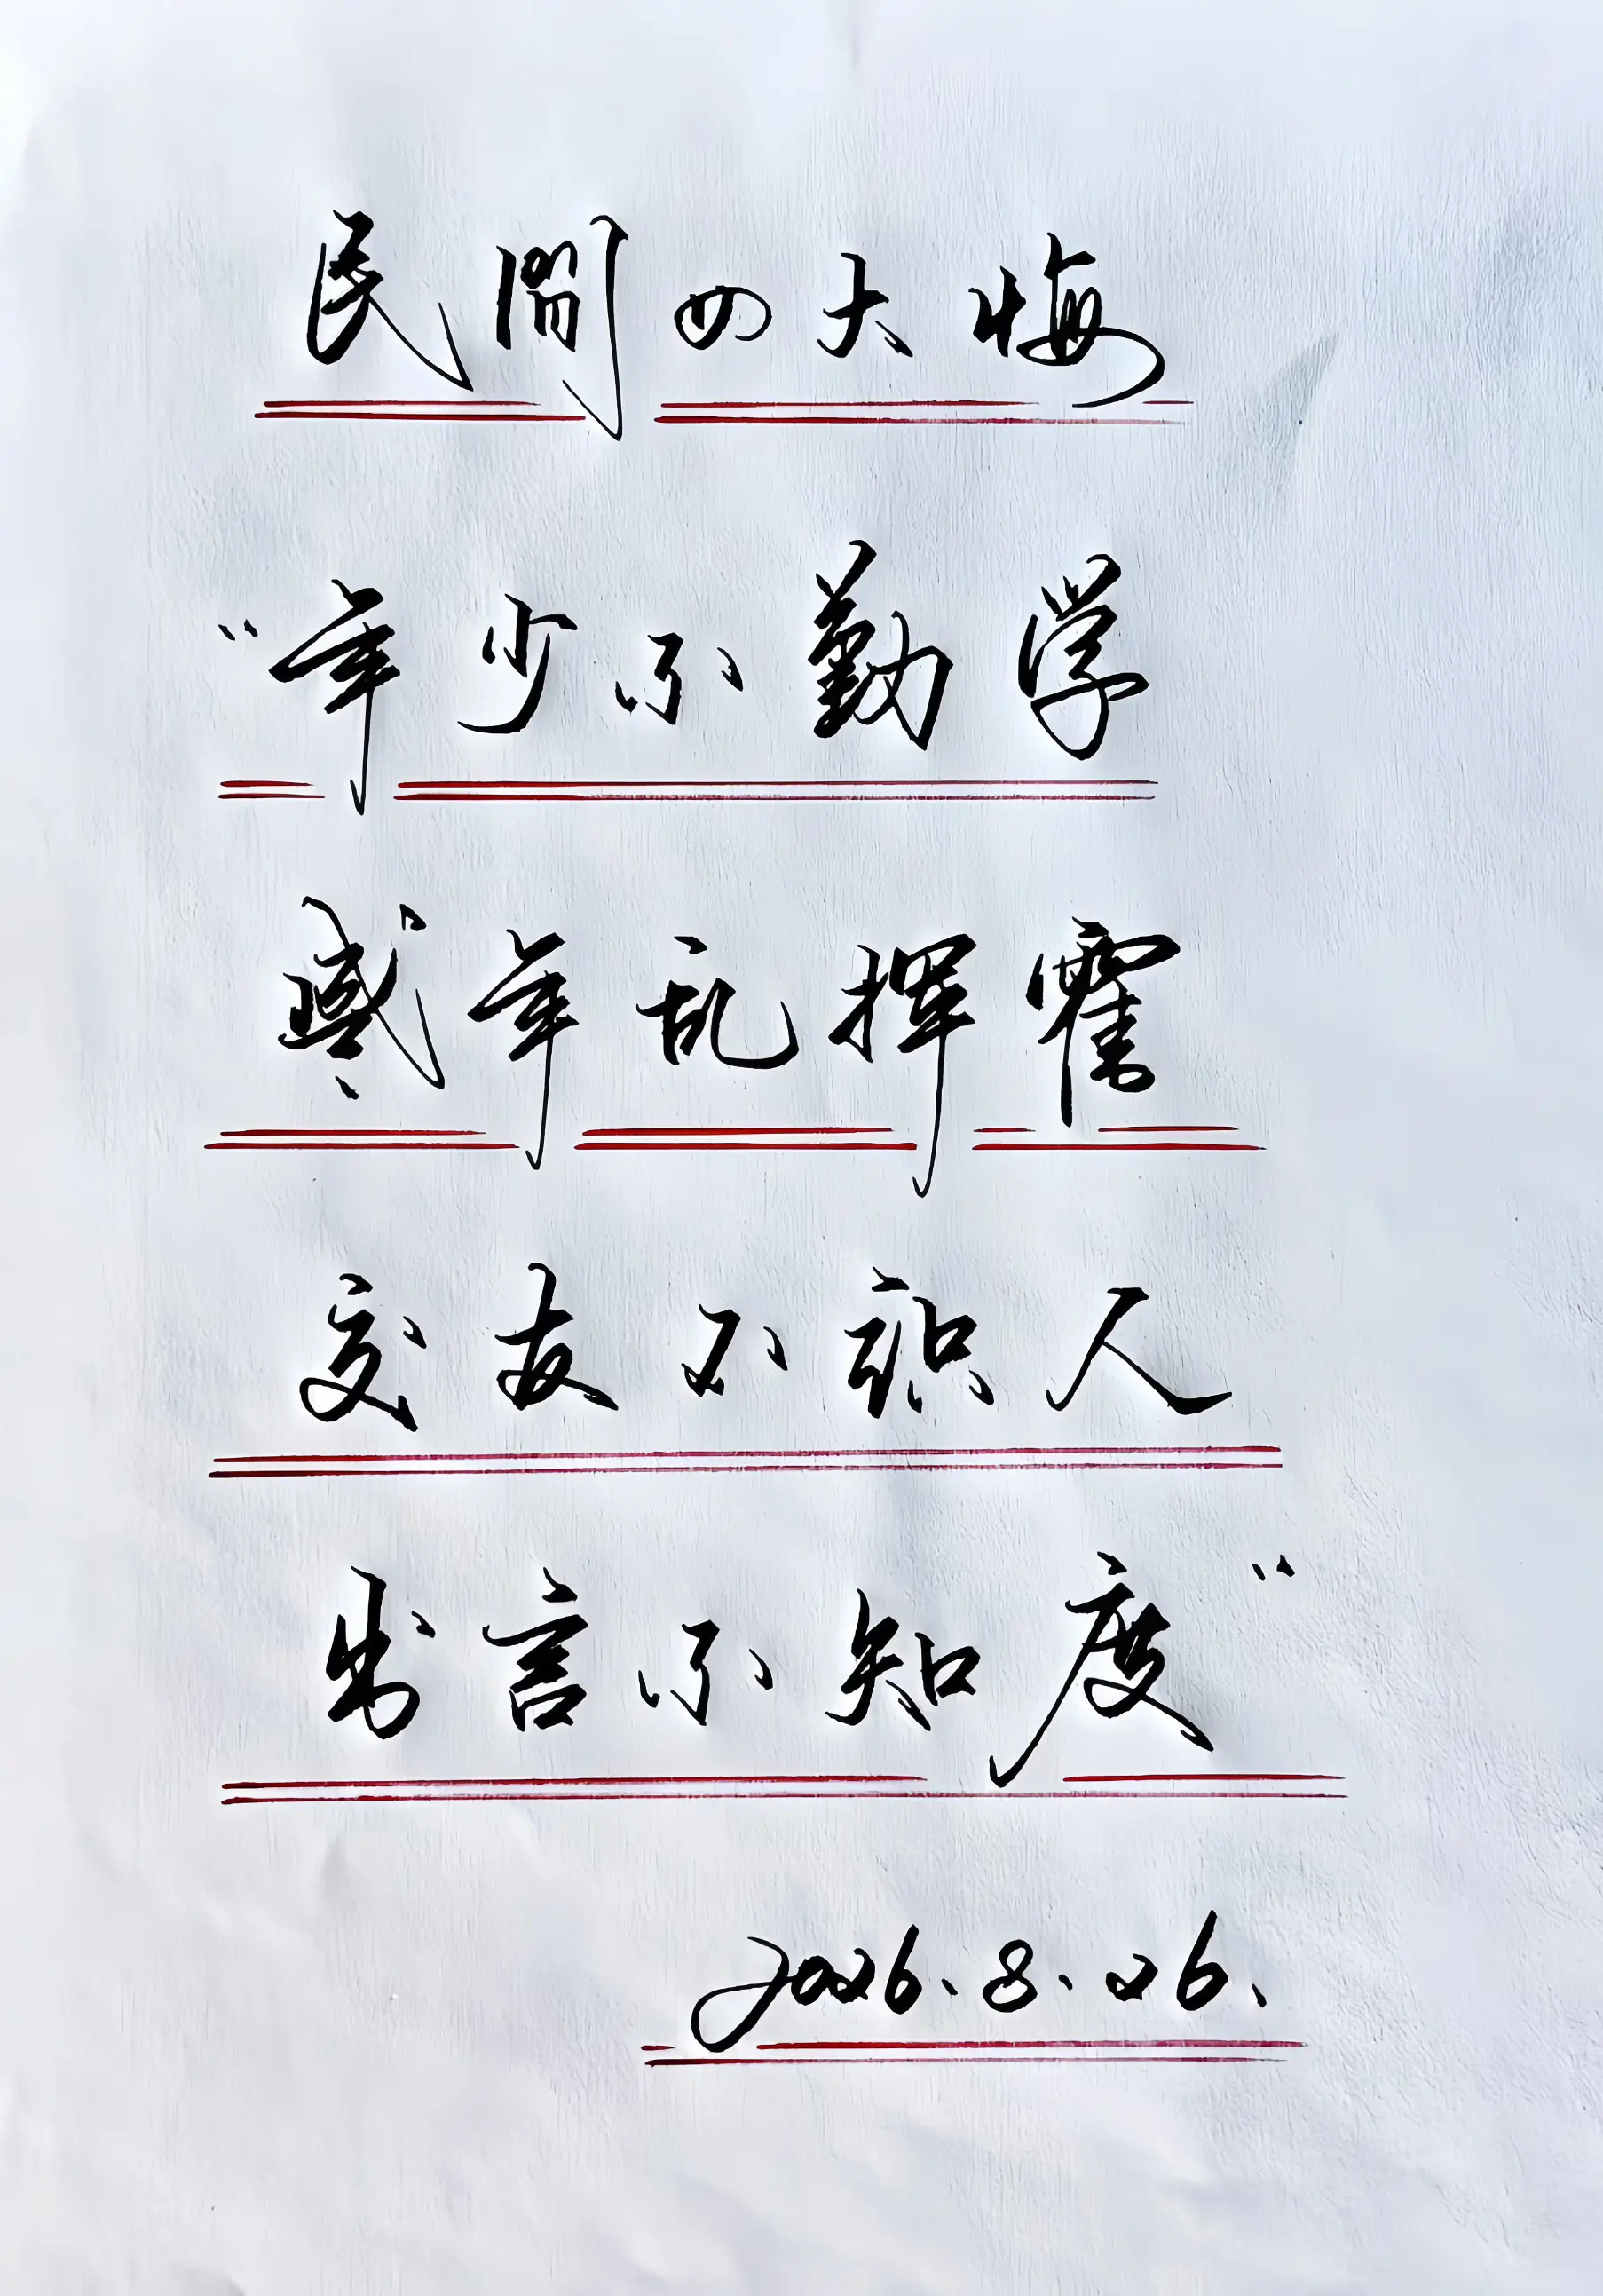 民间四大悔
"年少不勤学
盛年乱挥霍
交友不识人
出言不知度"
2026.8.26.